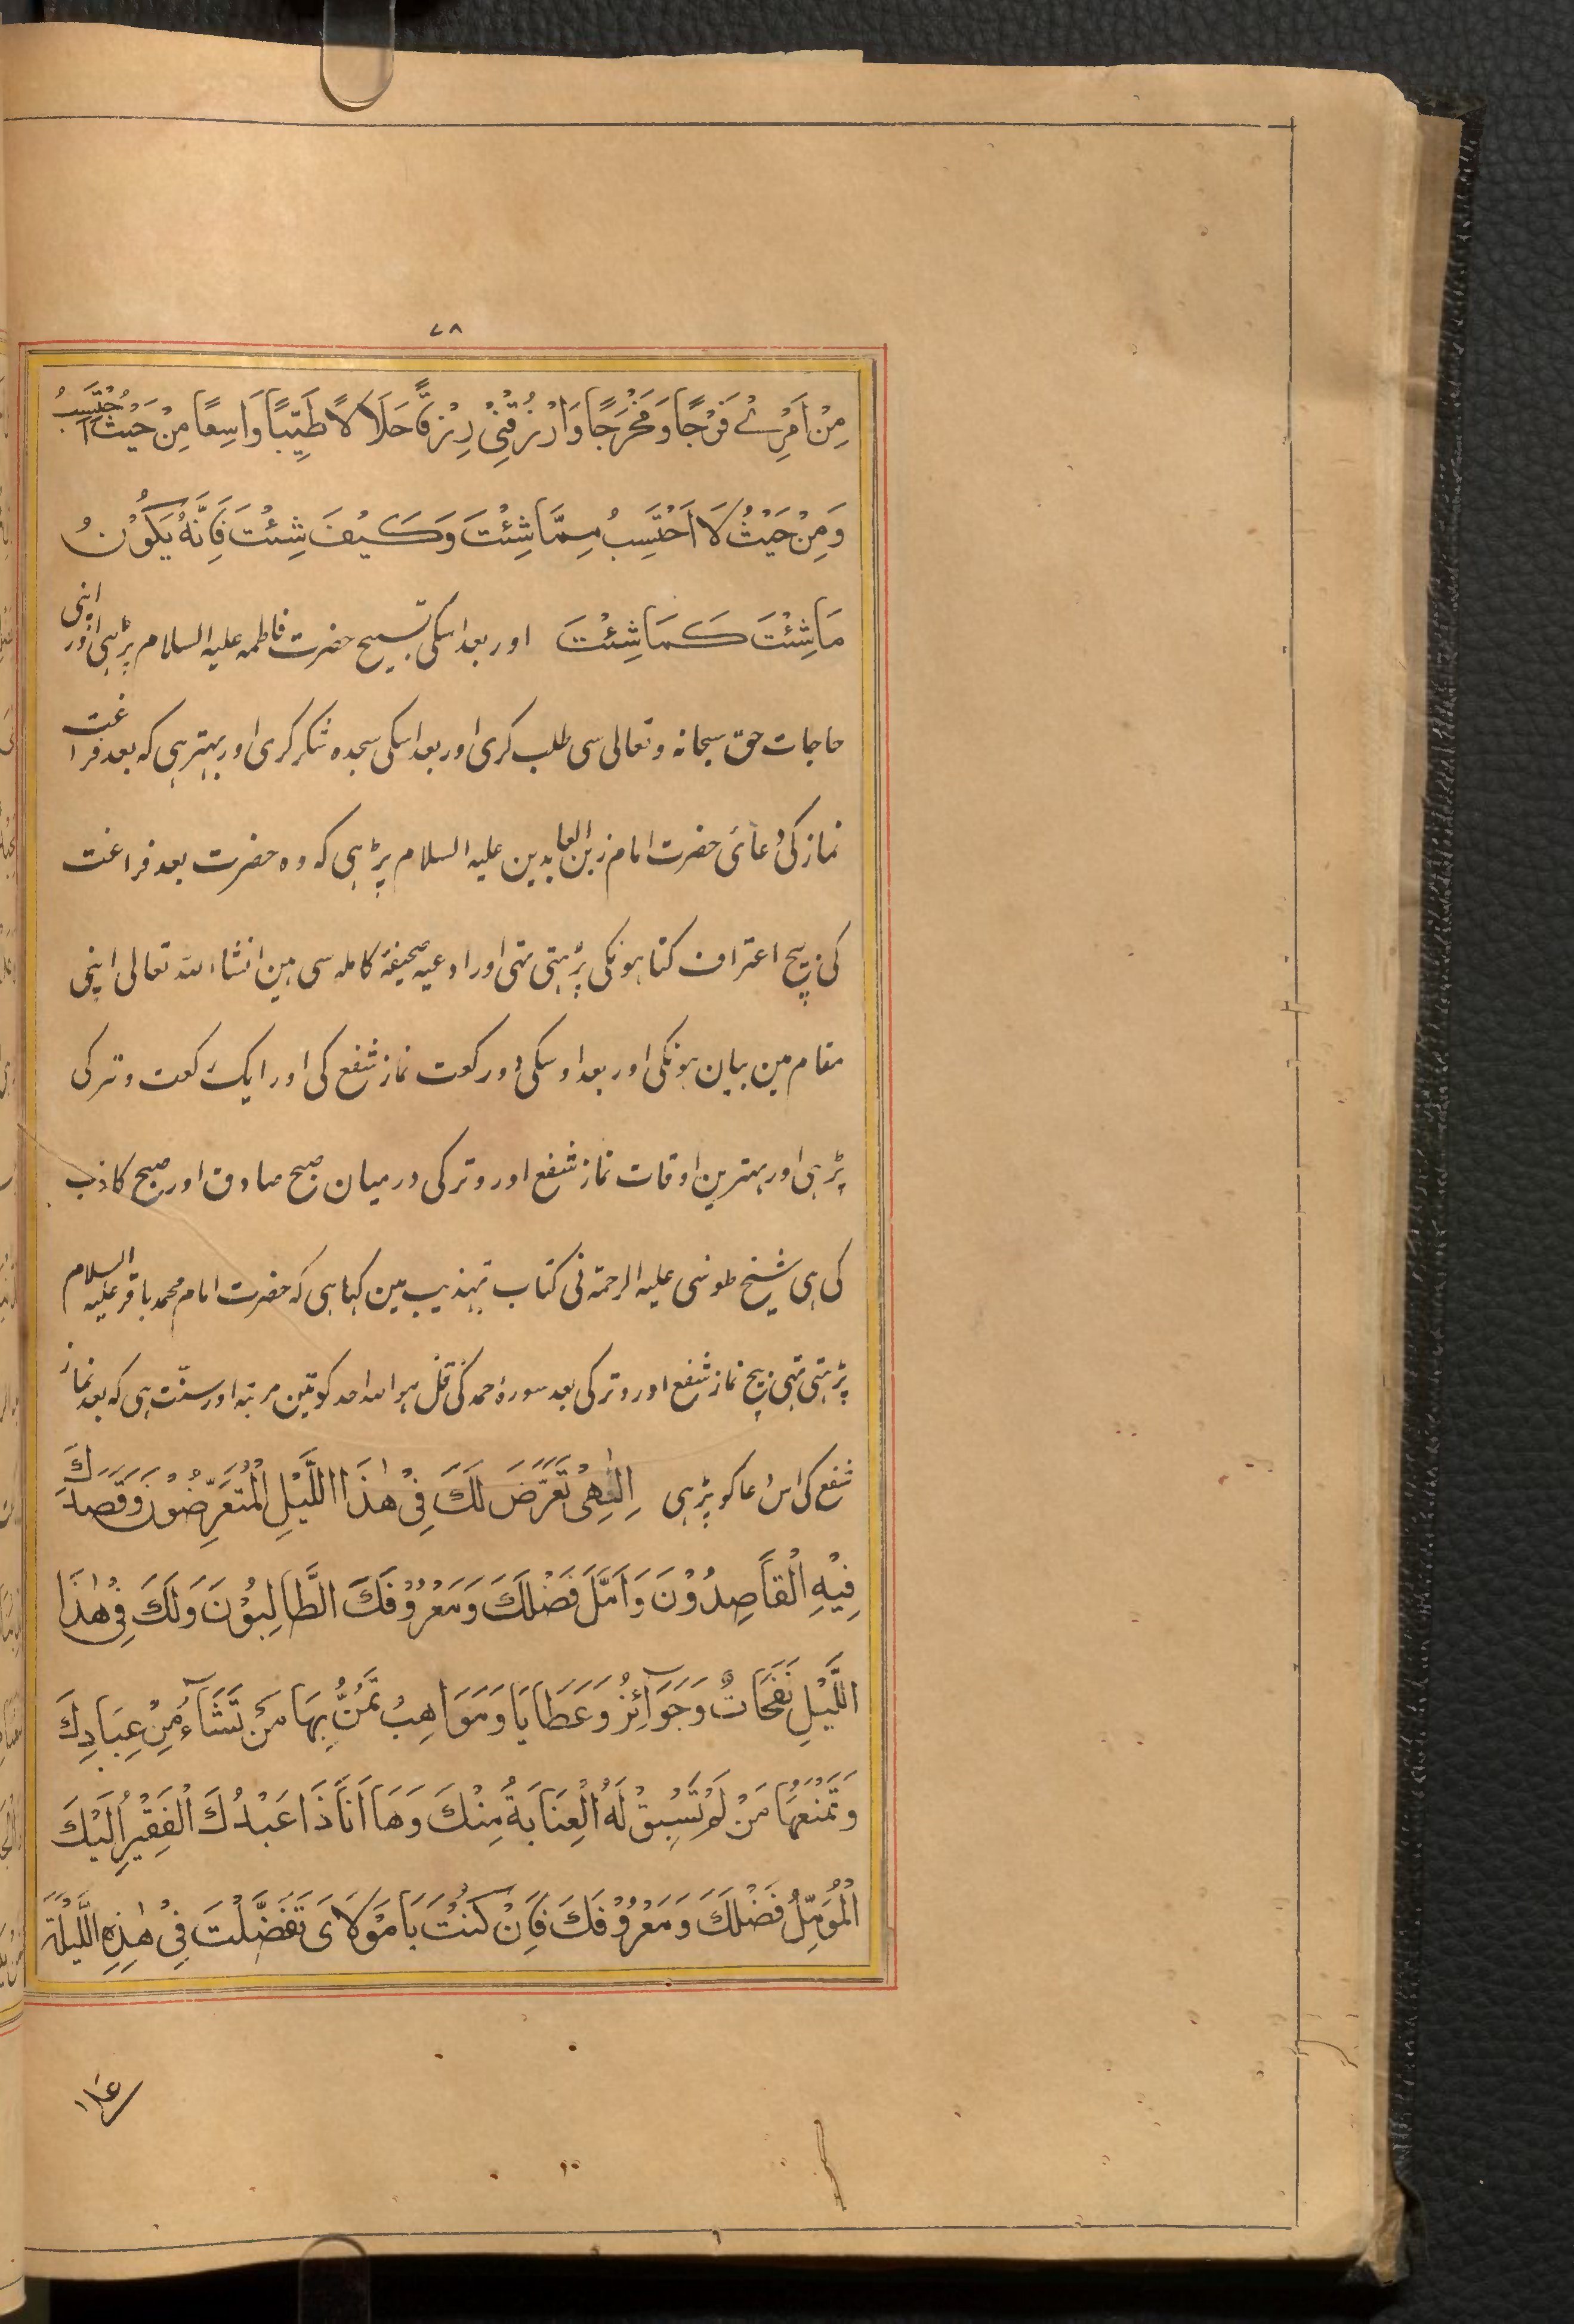 ۷۸
مِنْ اَمْرِیْ فَرَجًا وَمَخْرَجًا وَارْزُقْنِیْ رِزْقًا حَلَالًا طَیِّبًا وَاسِعًا مِنْ حَیْثُ اَحْتَسِبُ
وَمِنْ حَیْثُ لَا اَحْتَسِبُ مِمَّا شِئْتَ وَکَیْفَ شِئْتَ فَاِنَّهُ یَکُوْنُ
مَاشِئْتَ کَمَاشِئْتَ اور بعد اسکی تسبیح حضرت فاطمہ علیہ السلام پڑہی اور اپنی
حاجات حق سبحانہ و تعالی سی طلب کری اور بعد اسکی سجدہ شکر کری اور بہتر ہی کہ بعد فراغت
نماز کی دُعائی حضرت امام زین العابدین علیہ السلام پڑہی کہ وہ حضرت بعد فراغت
کی بیچ اعتراف کناہونکی پڑہتی تہی اور ادعیہ صحیفۂ کاملہ سی ہین انشاء اللہ تعالی اپنی
مقام مین بیان ہونکی اور بعد اوسکی دو رکعت نماز شفع کی اور ایک رکعت وتر کی
پڑہی اور بہترین اوقات نماز شفع اور وتر کی درمیان صبح صادق اور صبح کاذب
کی ہی شیخ طوسی علیہ الرحمۃ نی کتاب تہذیب مین کہا ہی کہ حضرت امام محمد باقر علیہ السلام
پڑہتی تہی بیچ نماز شفع اور وتر کی بعد سورۂ حمد کی قل ہو اللہ احد کو تین مرتبہ اور سنّت ہی کہ بعد نماز
شفع کی اس دُعا کو پڑہی اِلٰهِیْ تَعَرَّضَ لَكَ فِیْ هٰذَا اللَّیْلِ الْمُتَعَرِّضُوْنَ وَقَصَدَكَ
فِیْهِ الْقَاصِدُوْنَ وَاَمَّلَ فَضْلَكَ وَمَعْرُوْفَكَ الطَّالِبُوْنَ وَلَكَ فِیْ هٰذَا
اللَّیْلِ نَفَحَاتٌ وَجَوَآئِزُ وَعَطَایَا وَمَوَاهِبُ تَمُنُّ بِهَا مَنْ تَشَآءُ مِنْ عِبَادِكَ
وَتَمْنَعُهَا مَنْ لَمْ تَسْبِقْ لَهُ الْعِنَایَةُ مِنْكَ وَهَا اَنَا ذَا عَبْدُكَ الْفَقِیْرُ اِلَیْكَ
الْمُؤَمِّلُ فَضْلَكَ وَمَعْرُوْفَكَ فَاِنْ کُنْتَ یَا مَوْلَایَ تَفَضَّلْتَ فِیْ هٰذِهِ اللَّیْلَةِ